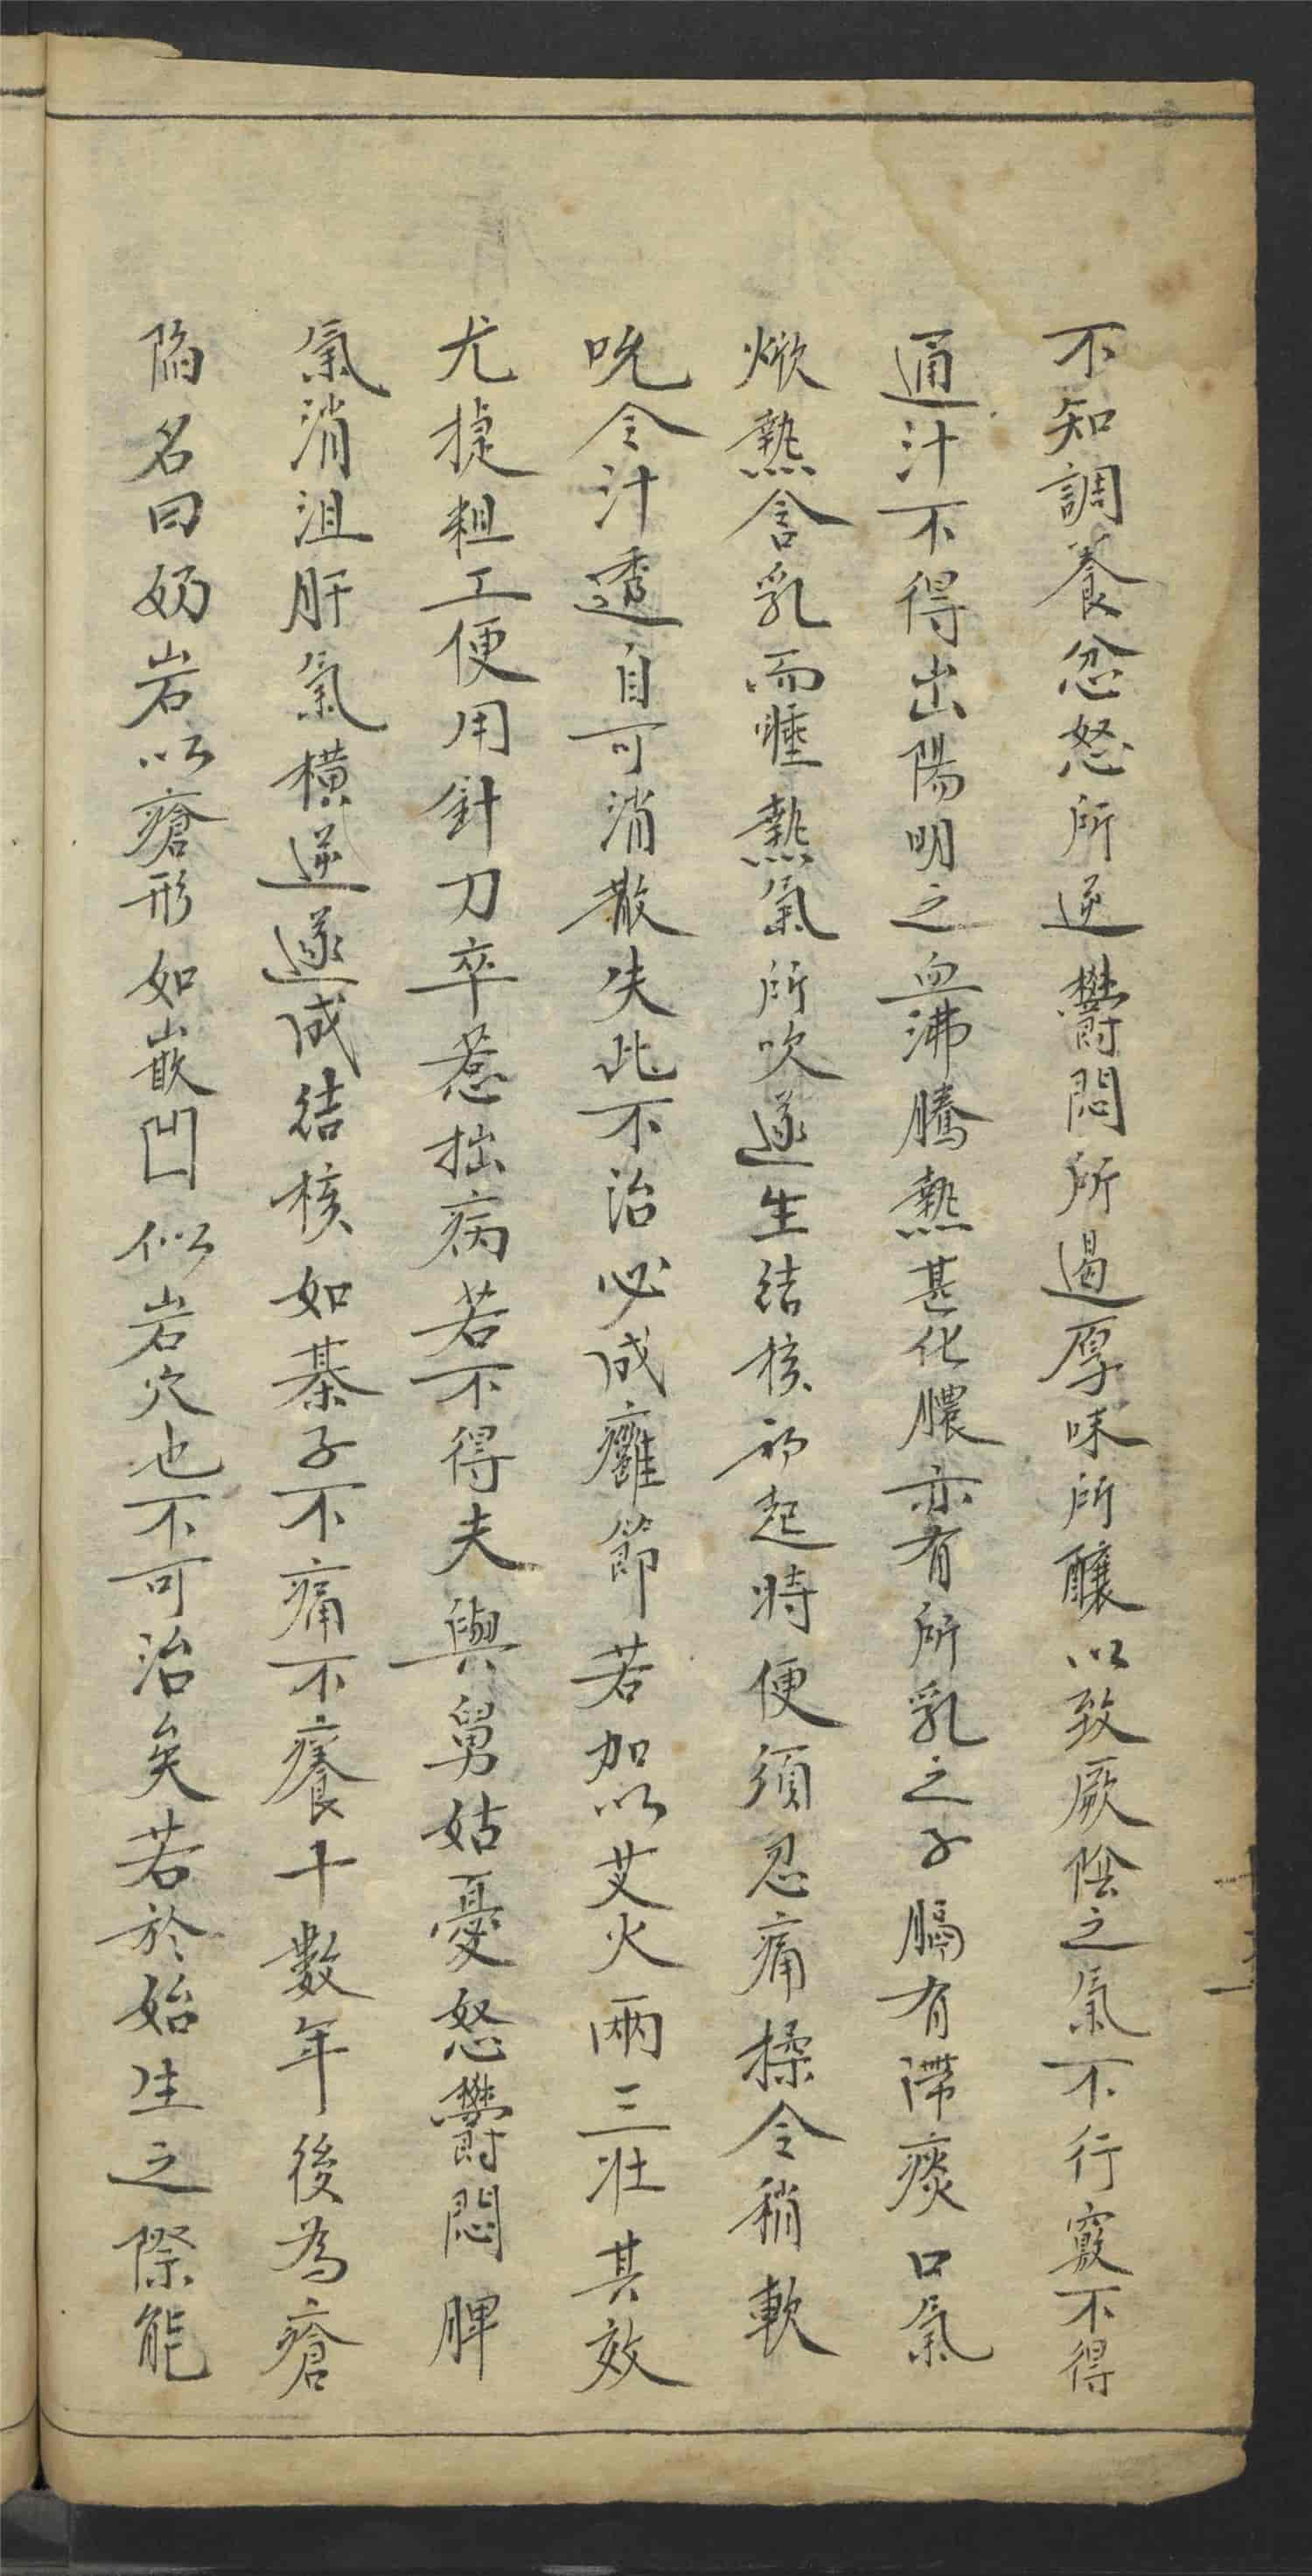 不知調養忿怒所逆欝悶所遏厚味所釀以致厥陰之氣不行竅不得
通汁不得出陽明之血沸騰熱甚化膿亦有所乳之子膈有滯痰口氣
焮熱含乳而睡熱氣所吹遂生結核初起時便須忍痛揉令稍軟
吮令汁透自可消散失此不治必成癰節若加以艾火兩三壯其效
尤捷粗工便用針刀卒惹拙病若不得夫與舅姑憂怒欝悶脾
氣消沮肝氣橫逆遂成結核如棊子不痛不癢十數年後為瘡
陷名曰奶岩以瘡形如嵌凹似岩穴也不可治矣若於始生之際能